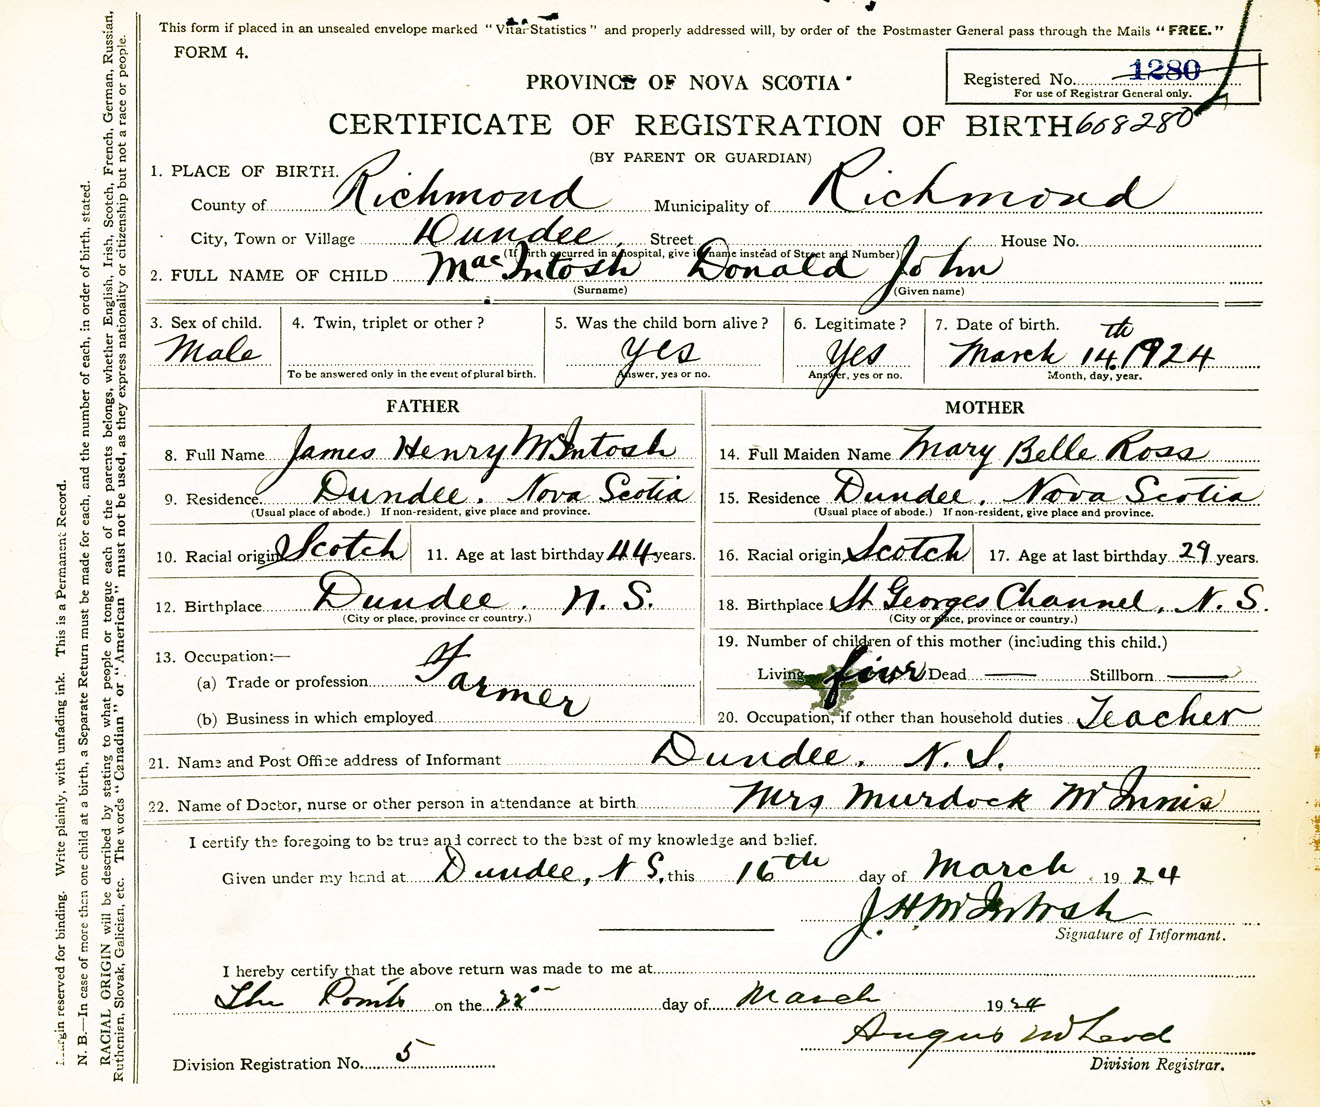 This form if placed in an unsealed envelope marked "Vital Statistics" and properly addressed will, by order of the Postmaster General pass through the Mails "FREE."
FORM 4.
PROVINCE OF NOVA SCOTIA
Registered No. 1280
For use of Registrar General only.
CERTIFICATE OF REGISTRATION OF BIRTH 608280
(BY PARENT OR GUARDIAN)
1. PLACE OF BIRTH.
County of Richmond Municipality of Richmond
City, Town or Village Dundee, Street House No.
(If birth occurred in a hospital, give its name instead of Street and Number)
2. FULL NAME OF CHILD MacIntosh Donald John
(Surname) (Given name)
3. Sex of child. 4. Twin, triplet or other? 5. Was the child born alive? 6. Legitimate? 7. Date of birth.
Male yes Yes March 14th, 1924
To be answered only in the event of plural birth. Answer, yes or no. Answer, yes or no. Month, day, year.
FATHER MOTHER
8. Full Name James Henry McIntosh 14. Full Maiden Name Mary Belle Ross
9. Residence Dundee, Nova Scotia 15. Residence Dundee, Nova Scotia
(Usual place of abode.) If non-resident, give place and province. (Usual place of abode.) If non-resident, give place and province.
10. Racial origin Scotch 11. Age at last birthday 44 years. 16. Racial origin Scotch 17. Age at last birthday 29 years.
12. Birthplace Dundee, N.S. 18. Birthplace St Georges Channel, N.S.
(City or place, province or country.) (City or place, province or country.)
13. Occupation:— 19. Number of children of this mother (including this child.)
(a) Trade or profession Farmer Living five Dead — Stillborn —
(b) Business in which employed 20. Occupation, if other than household duties Teacher
21. Name and Post Office address of Informant Dundee, N.S.
22. Name of Doctor, nurse or other person in attendance at birth Mrs Murdock McInnis
I certify the foregoing to be true and correct to the best of my knowledge and belief.
Given under my hand at Dundee, N S, this 16th day of March 1924
J. H. McIntosh
Signature of Informant.
I hereby certify that the above return was made to me at
The Points on the 22 day of March 1924
Angus McLeod
Division Registration No. 5 Division Registrar.
Margin reserved for binding. Write plainly, with unfading ink. This is a Permanent Record.
N. B.—In case of more than one child at a birth, a Separate Return must be made for each, and the number of each, in order of birth, stated.
RACIAL ORIGIN will be described by stating to what people or tongue each of the parents belongs, whether English, Irish, Scotch, French, German, Russian,
Ruthenian, Slovak, Galician, etc. The words "Canadian" or "American" must not be used, as they express nationality or citizenship but not a race or people.